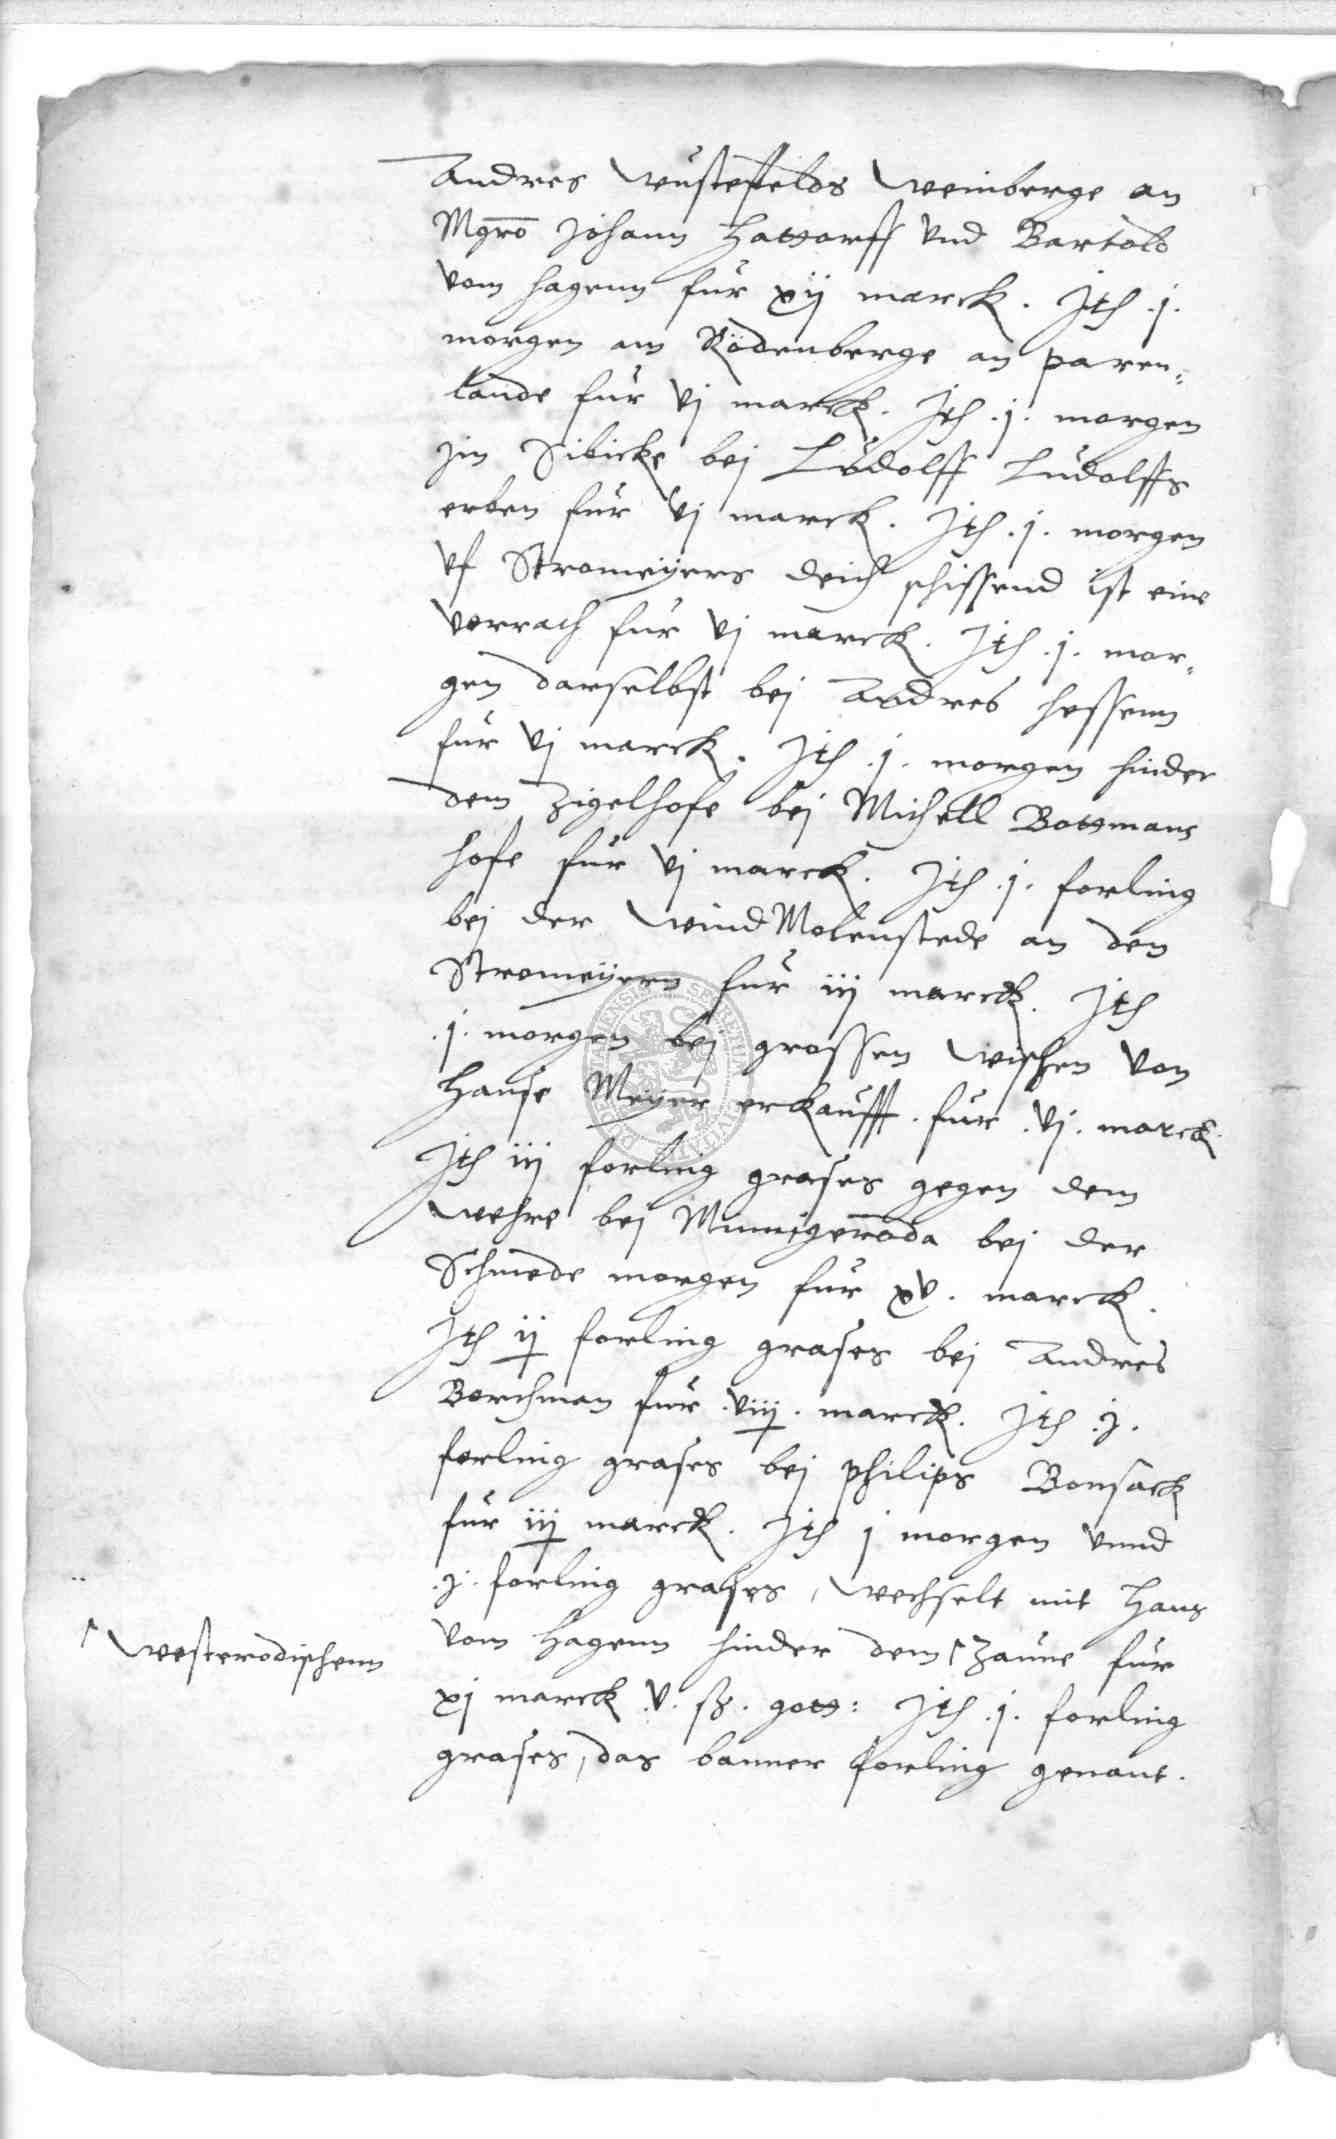 Andres Wustefelds Weinberge an
Mgro Johann Hattorff vnd Bartold
vom Hagenn fur xij marck. Jth .j.
morgen am Rödenberge an paren=
lande fur vj marck. Jth .j. morgen
jm Sibicke bej Ludolff Ludolffs
erben fur vj marck. Jth .j. morgen
vf Stromeyers deich schissend ist eine
vorrach fur vj marck. Jth .j. mor=
gen darselbst bej Andres Hessenn
fur vj marck. Jth .j. morgen hinder
dem Zigelhofe bej Michell Bottmans
hofe fur vj marck. Jth .j. forling
bej der Wind Molenstede an den
Stromeyern fur iij marck. Jth
.j. morgen bej grossen Wischen von
Hanse Meyer erkaufft. fur .vj. marck.
Jth iij forling grases gegen dem
Wehre bej Minnigeroda bej der
Schmede morgen fur xv. marck.
Jth ij forling grases bej Andres
Borchman fur .viij. marck. Jth .j.
forling grases bej philips Bonsack
fur iij marck. Jth j morgen vnnd
.j. forling grases, Wechselt mit Hans
vom Hagenn hinder dem Zaune fur
Westerodischenn
xj marck .v. ß. gott: Jth .j. forling
grases, das banner forling genant.